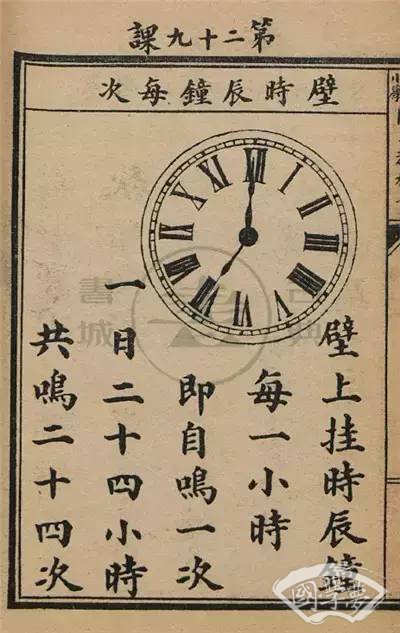 第二十九課
壁時辰鐘每次
XII
I
II
III
IIII
V
VI
VII
VIII
IX
X
XI
壁上挂時辰鐘
每一小時
即自鳴一次
一日二十四小時
共鳴二十四次
古典
書城
國學夢